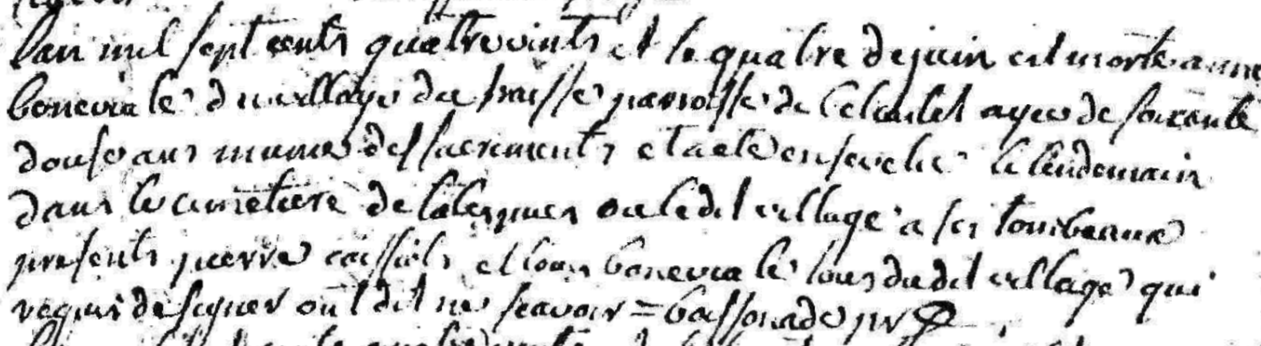 lan mil sept cents quatrevints et le quatre de juin est morte anne
boneviale du village du parroisse de ayee de soixante
douse ans munie des sacrements et a ete ensevelie le lendemain
dans le cimetiere de ou le dit village a ses tombeaux
presents pierre et louis boneviale tous du dit village qui
requis de signer ont dit ne scavoir =